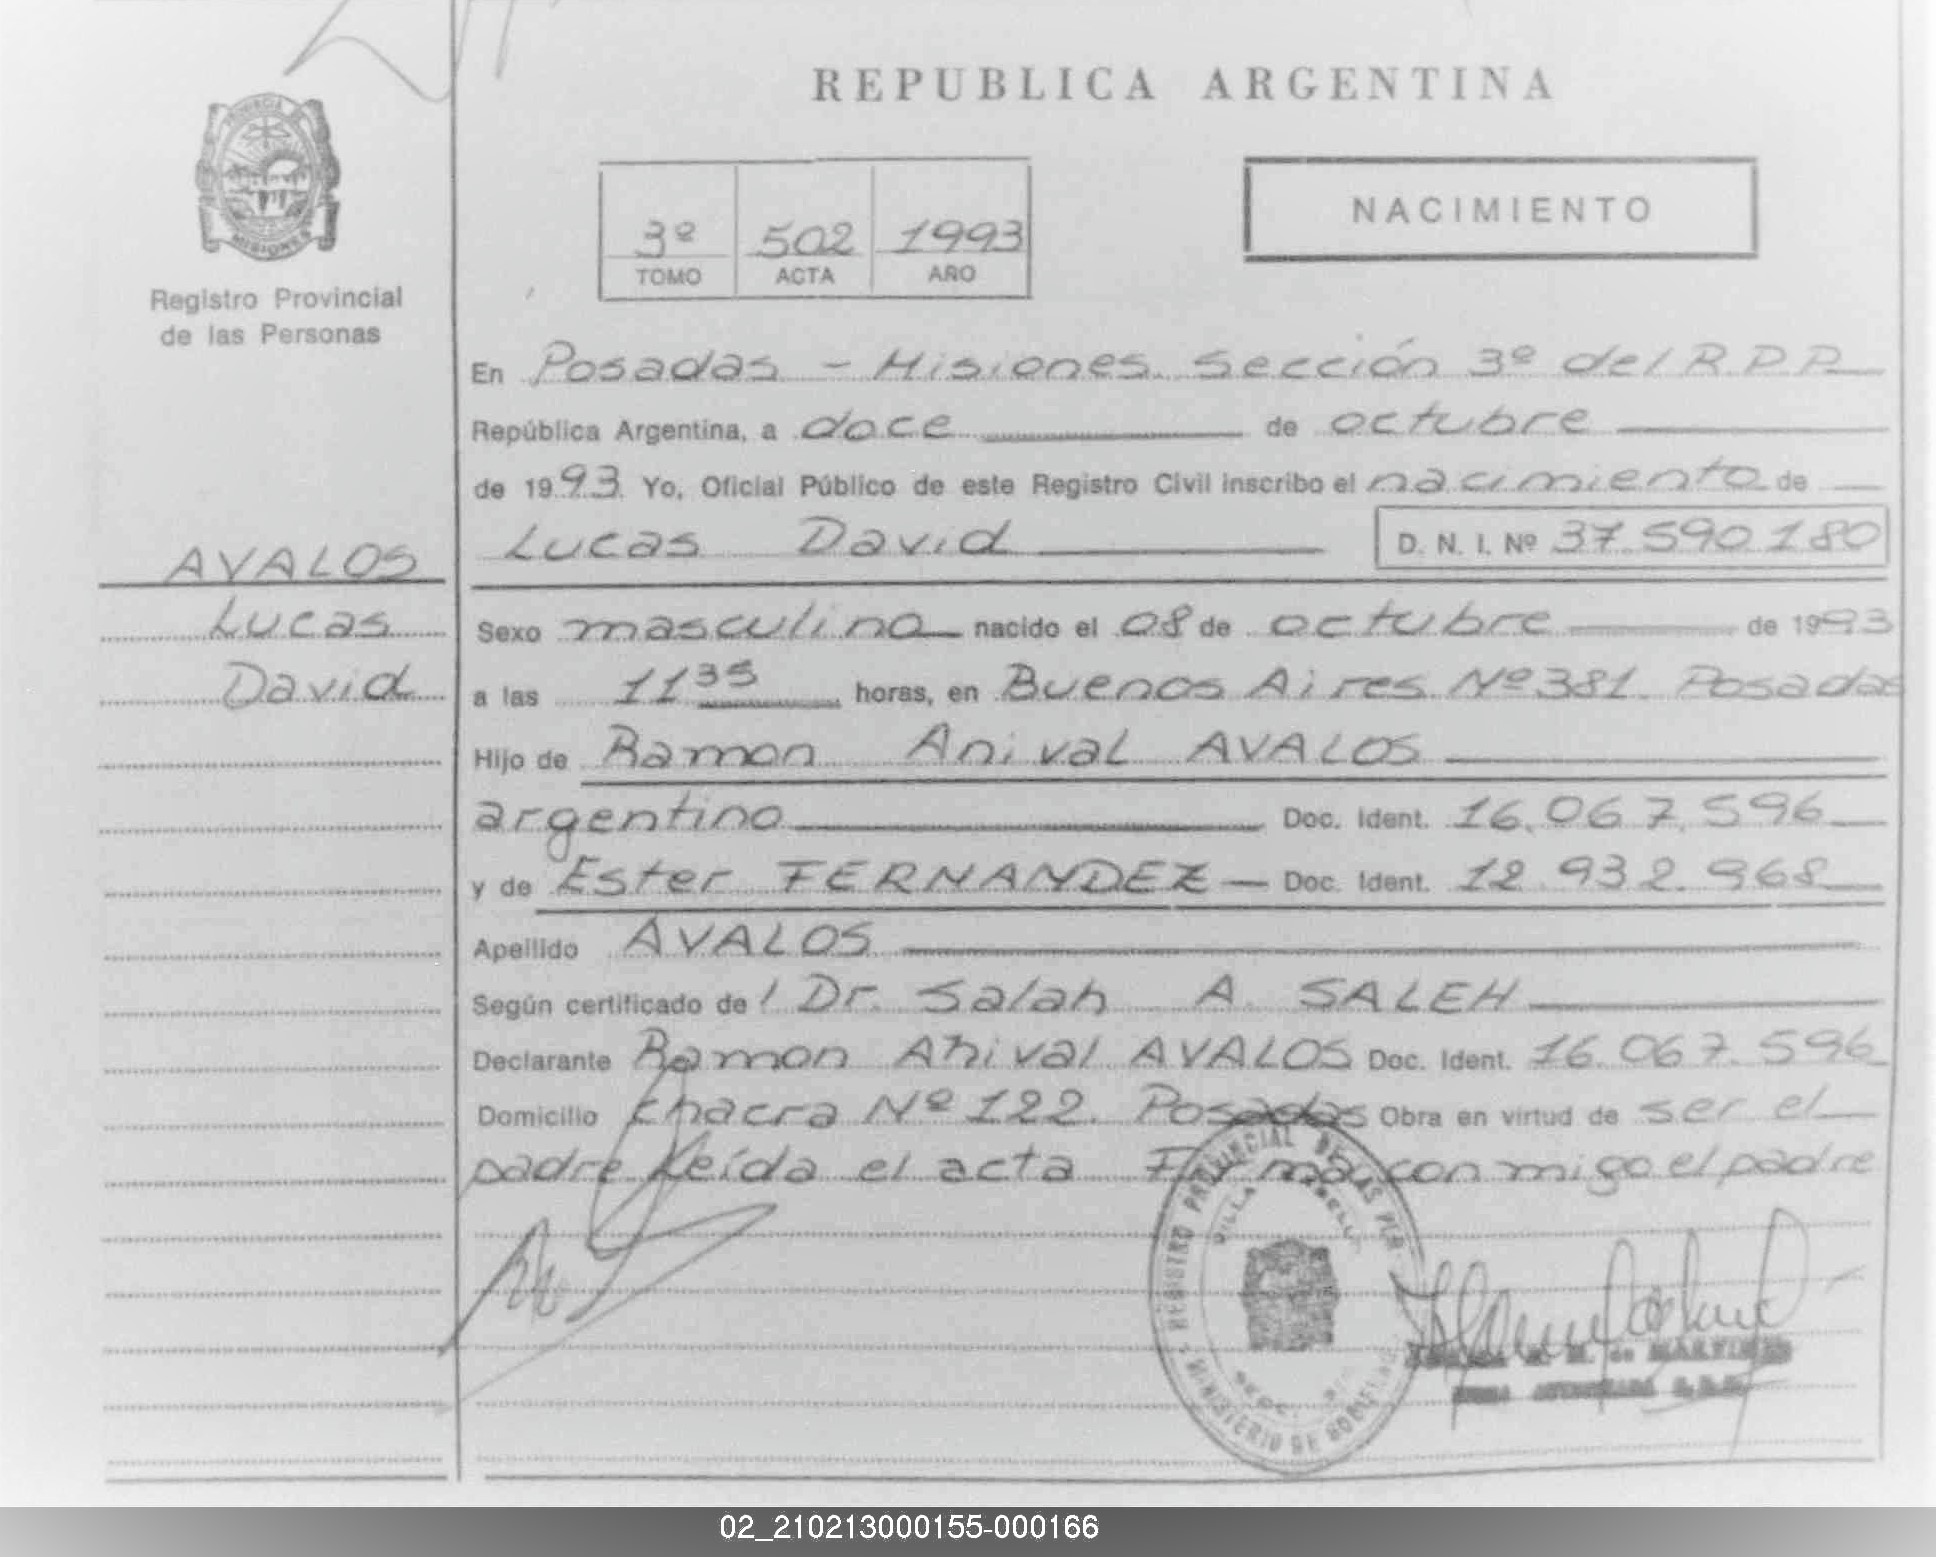 REPUBLICA ARGENTINA
PROVINCIA
MISIONES
Registro Provincial
de las Personas
3º 502 1993
TOMO ACTA AÑO
NACIMIENTO
En Posadas - Misiones. Sección 3º del R.P.P.
República Argentina, a doce de octubre
de 1993 Yo, Oficial Público de este Registro Civil inscribo el nacimiento de
Lucas David D. N. I. Nº 37.590.180
AVALOS
Lucas
David
Sexo masculino nacido el 08 de octubre de 1993
a las 11 35 horas, en Buenos Aires Nº 381. Posadas
Hijo de Ramon Anival AVALOS
argentino Doc. Ident. 16.067.596
y de Ester FERNANDEZ Doc. Ident. 12.932.968
Apellido AVALOS
Según certificado de l Dr. Salah A. SALEH
Declarante Ramon Anival AVALOS Doc. Ident. 16.067.596
Domicilio Chacra Nº 122. Posadas Obra en virtud de ser el
padre Leída el acta Firma con migo el padre
REGISTRO PROVINCIAL DE LAS PER
MINISTERIO DE GOBIERNO
M. de MARTINEZ
02_210213000155-000166